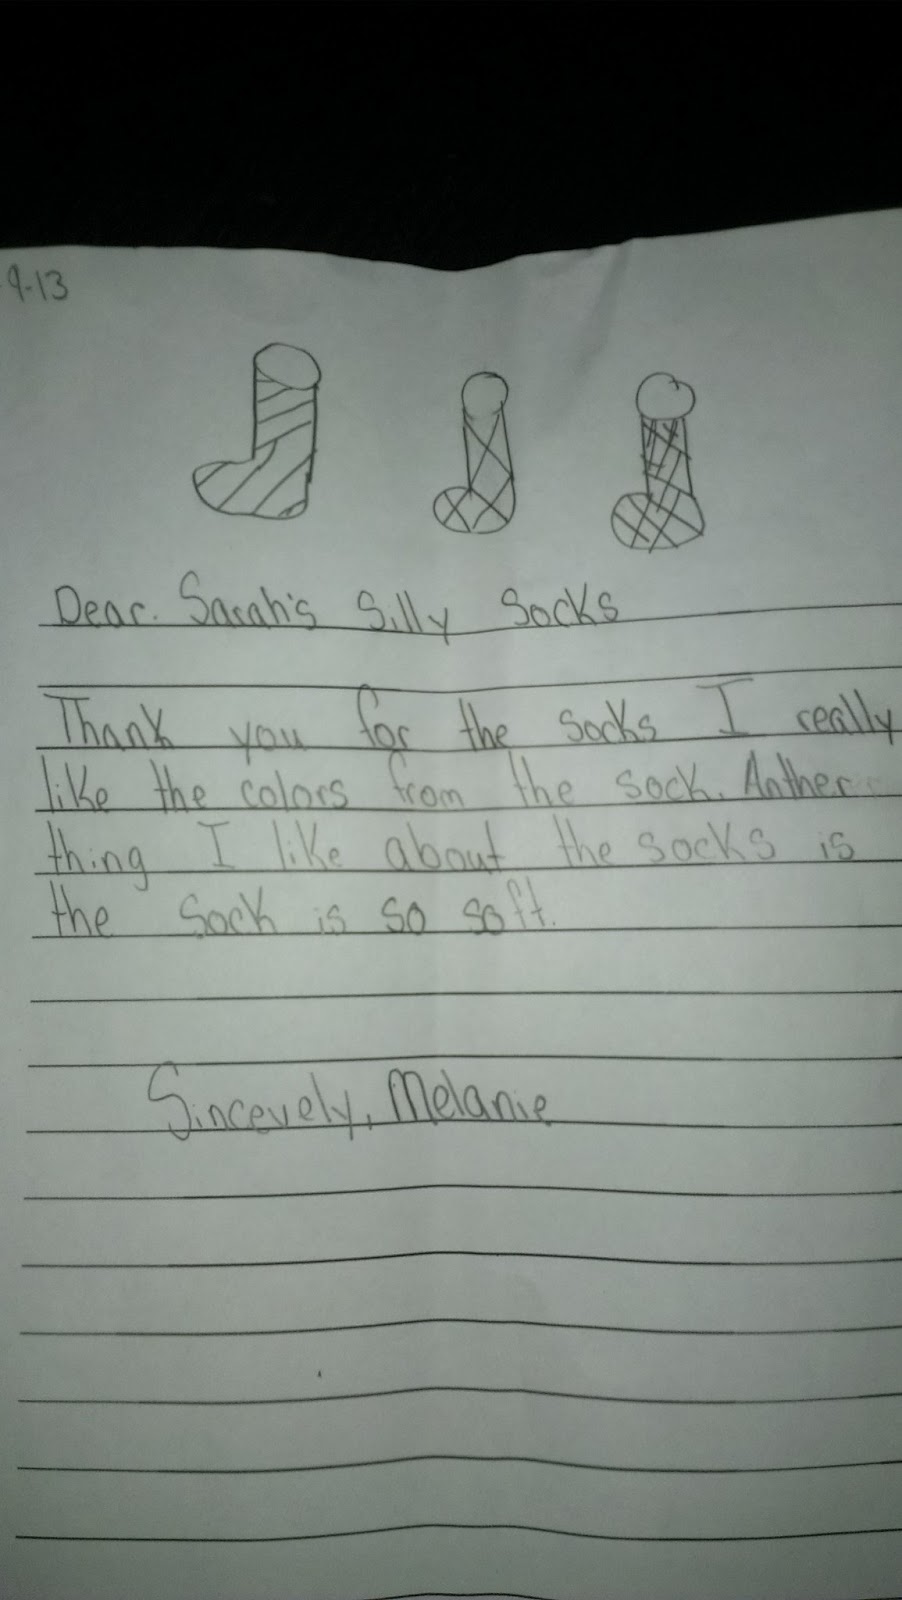 9-13
Dear. Sarah's Silly Socks
Thank you for the socks I really
like the colors from the sock. Anther
thing I like about the socks is
the sock is so soft.
Sincevely, Melanie